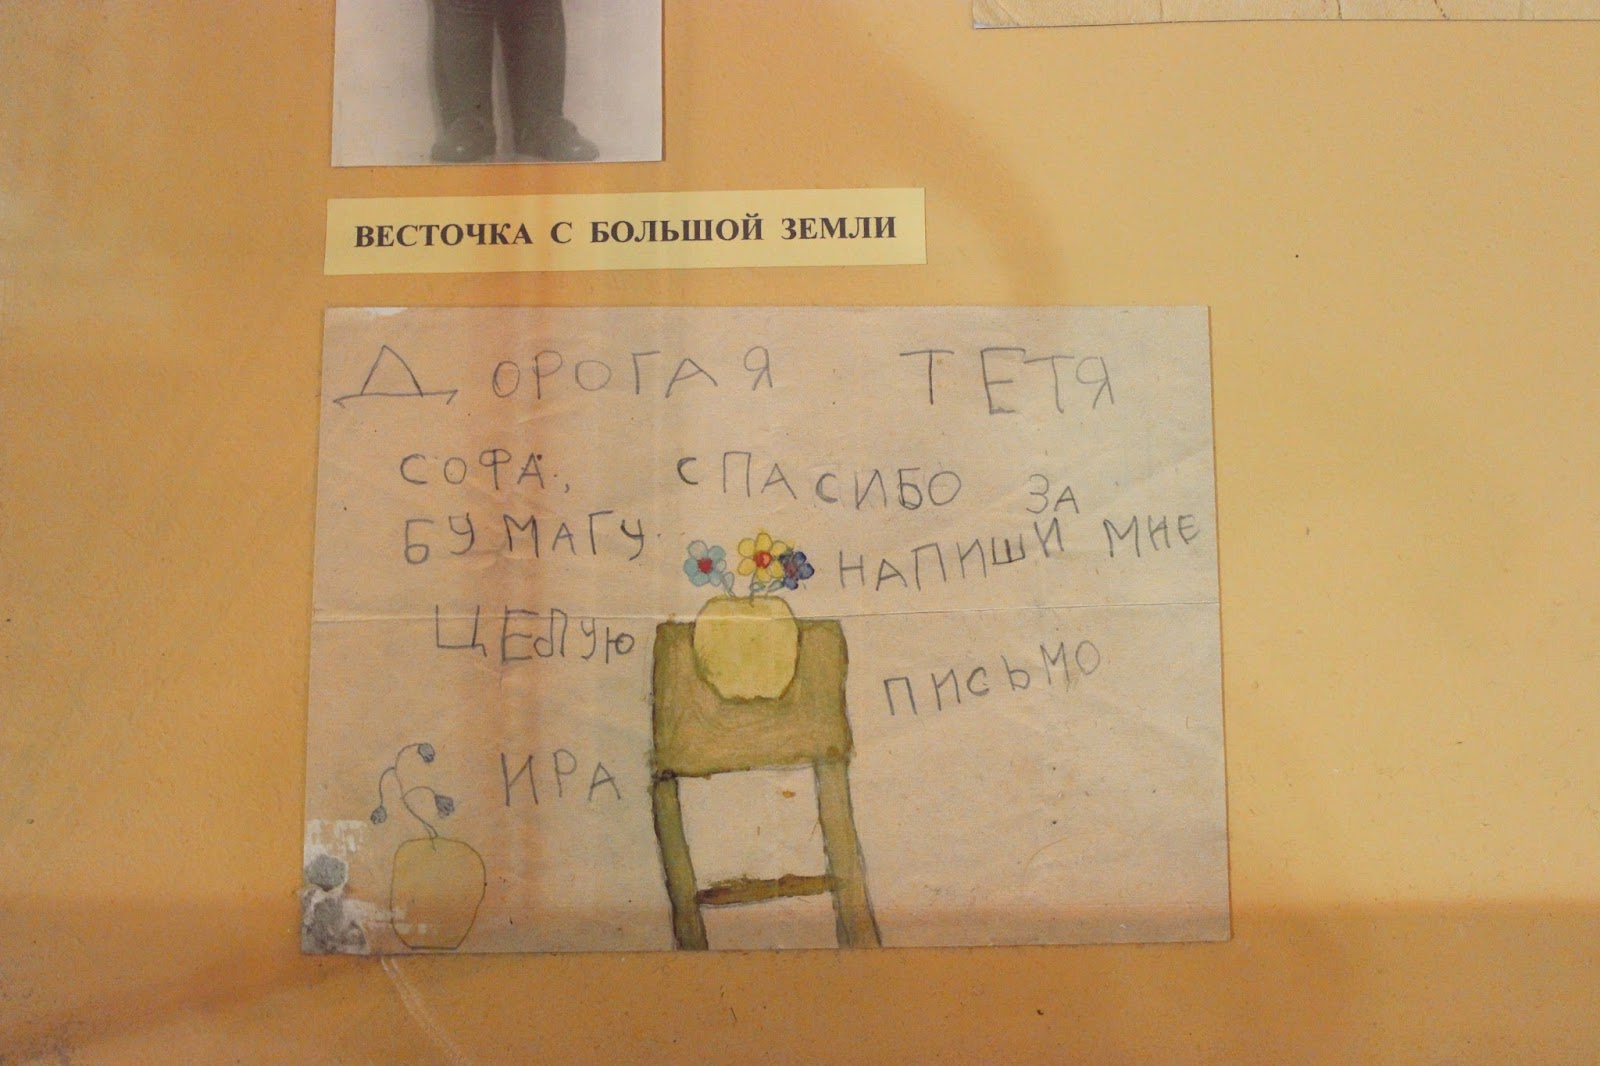 ВЕСТОЧКА С БОЛЬШОЙ ЗЕМЛИ
ДОРОГАЯ ТЕТЯ
СОФА, СПАСИБО ЗА
БУМАГУ. НАПИШИ МНЕ
ПИСЬМО
ЦЕЛУЮ
ИРА